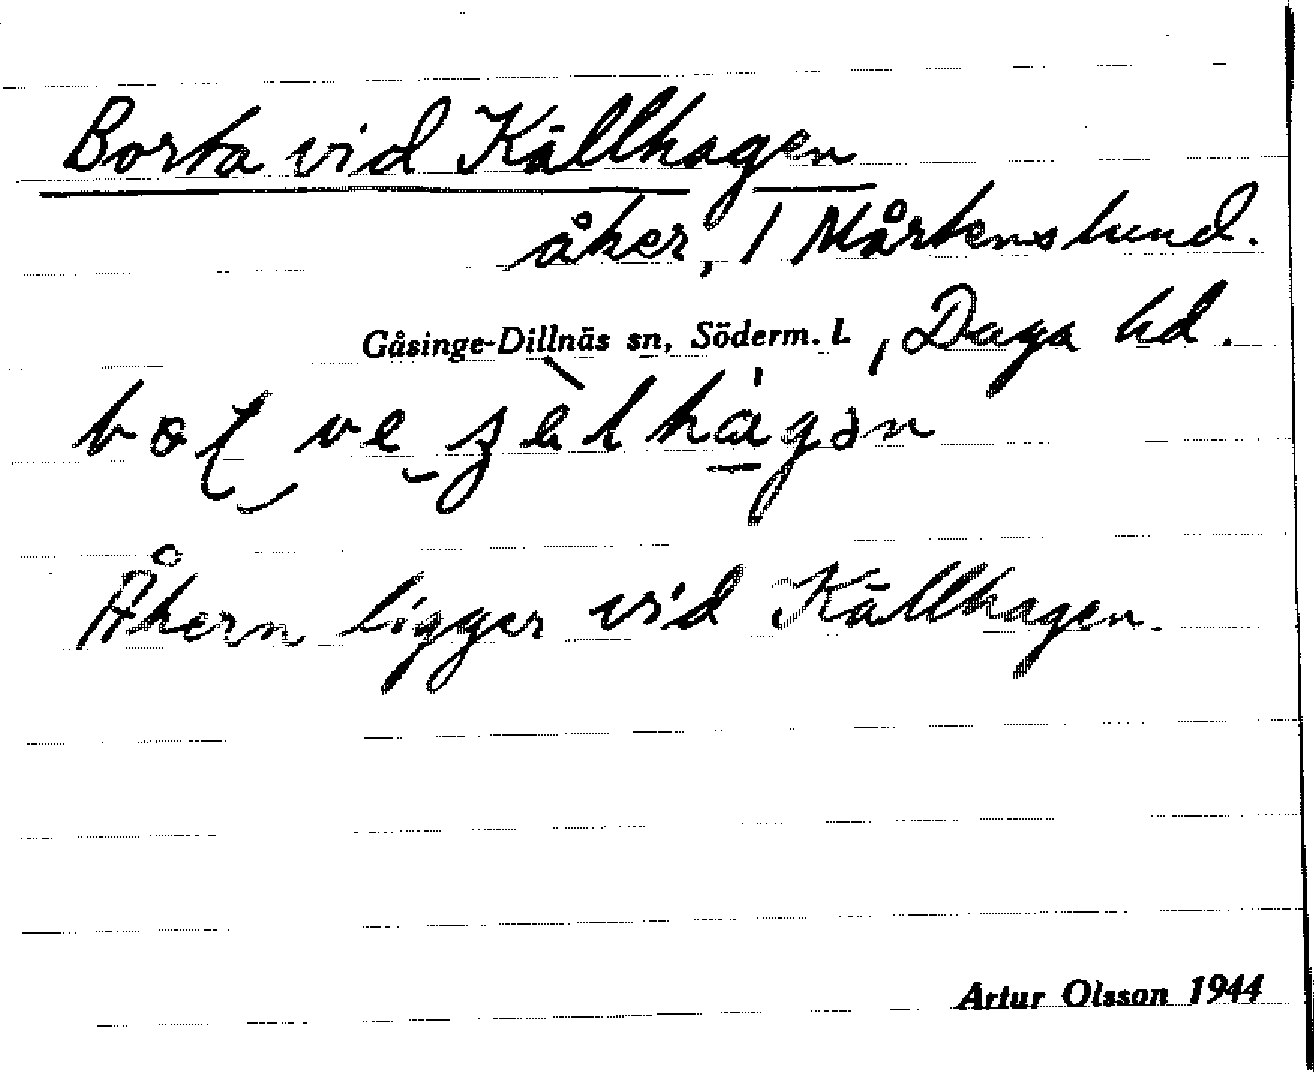 Borta vid Källhagen
åker, 1 Mårtenslund.
Gåsinge-Dillnäs sn, Söderm. l. , Daga hd.
Åkern ligger vid Källhagen.
Artur Olsson 1944